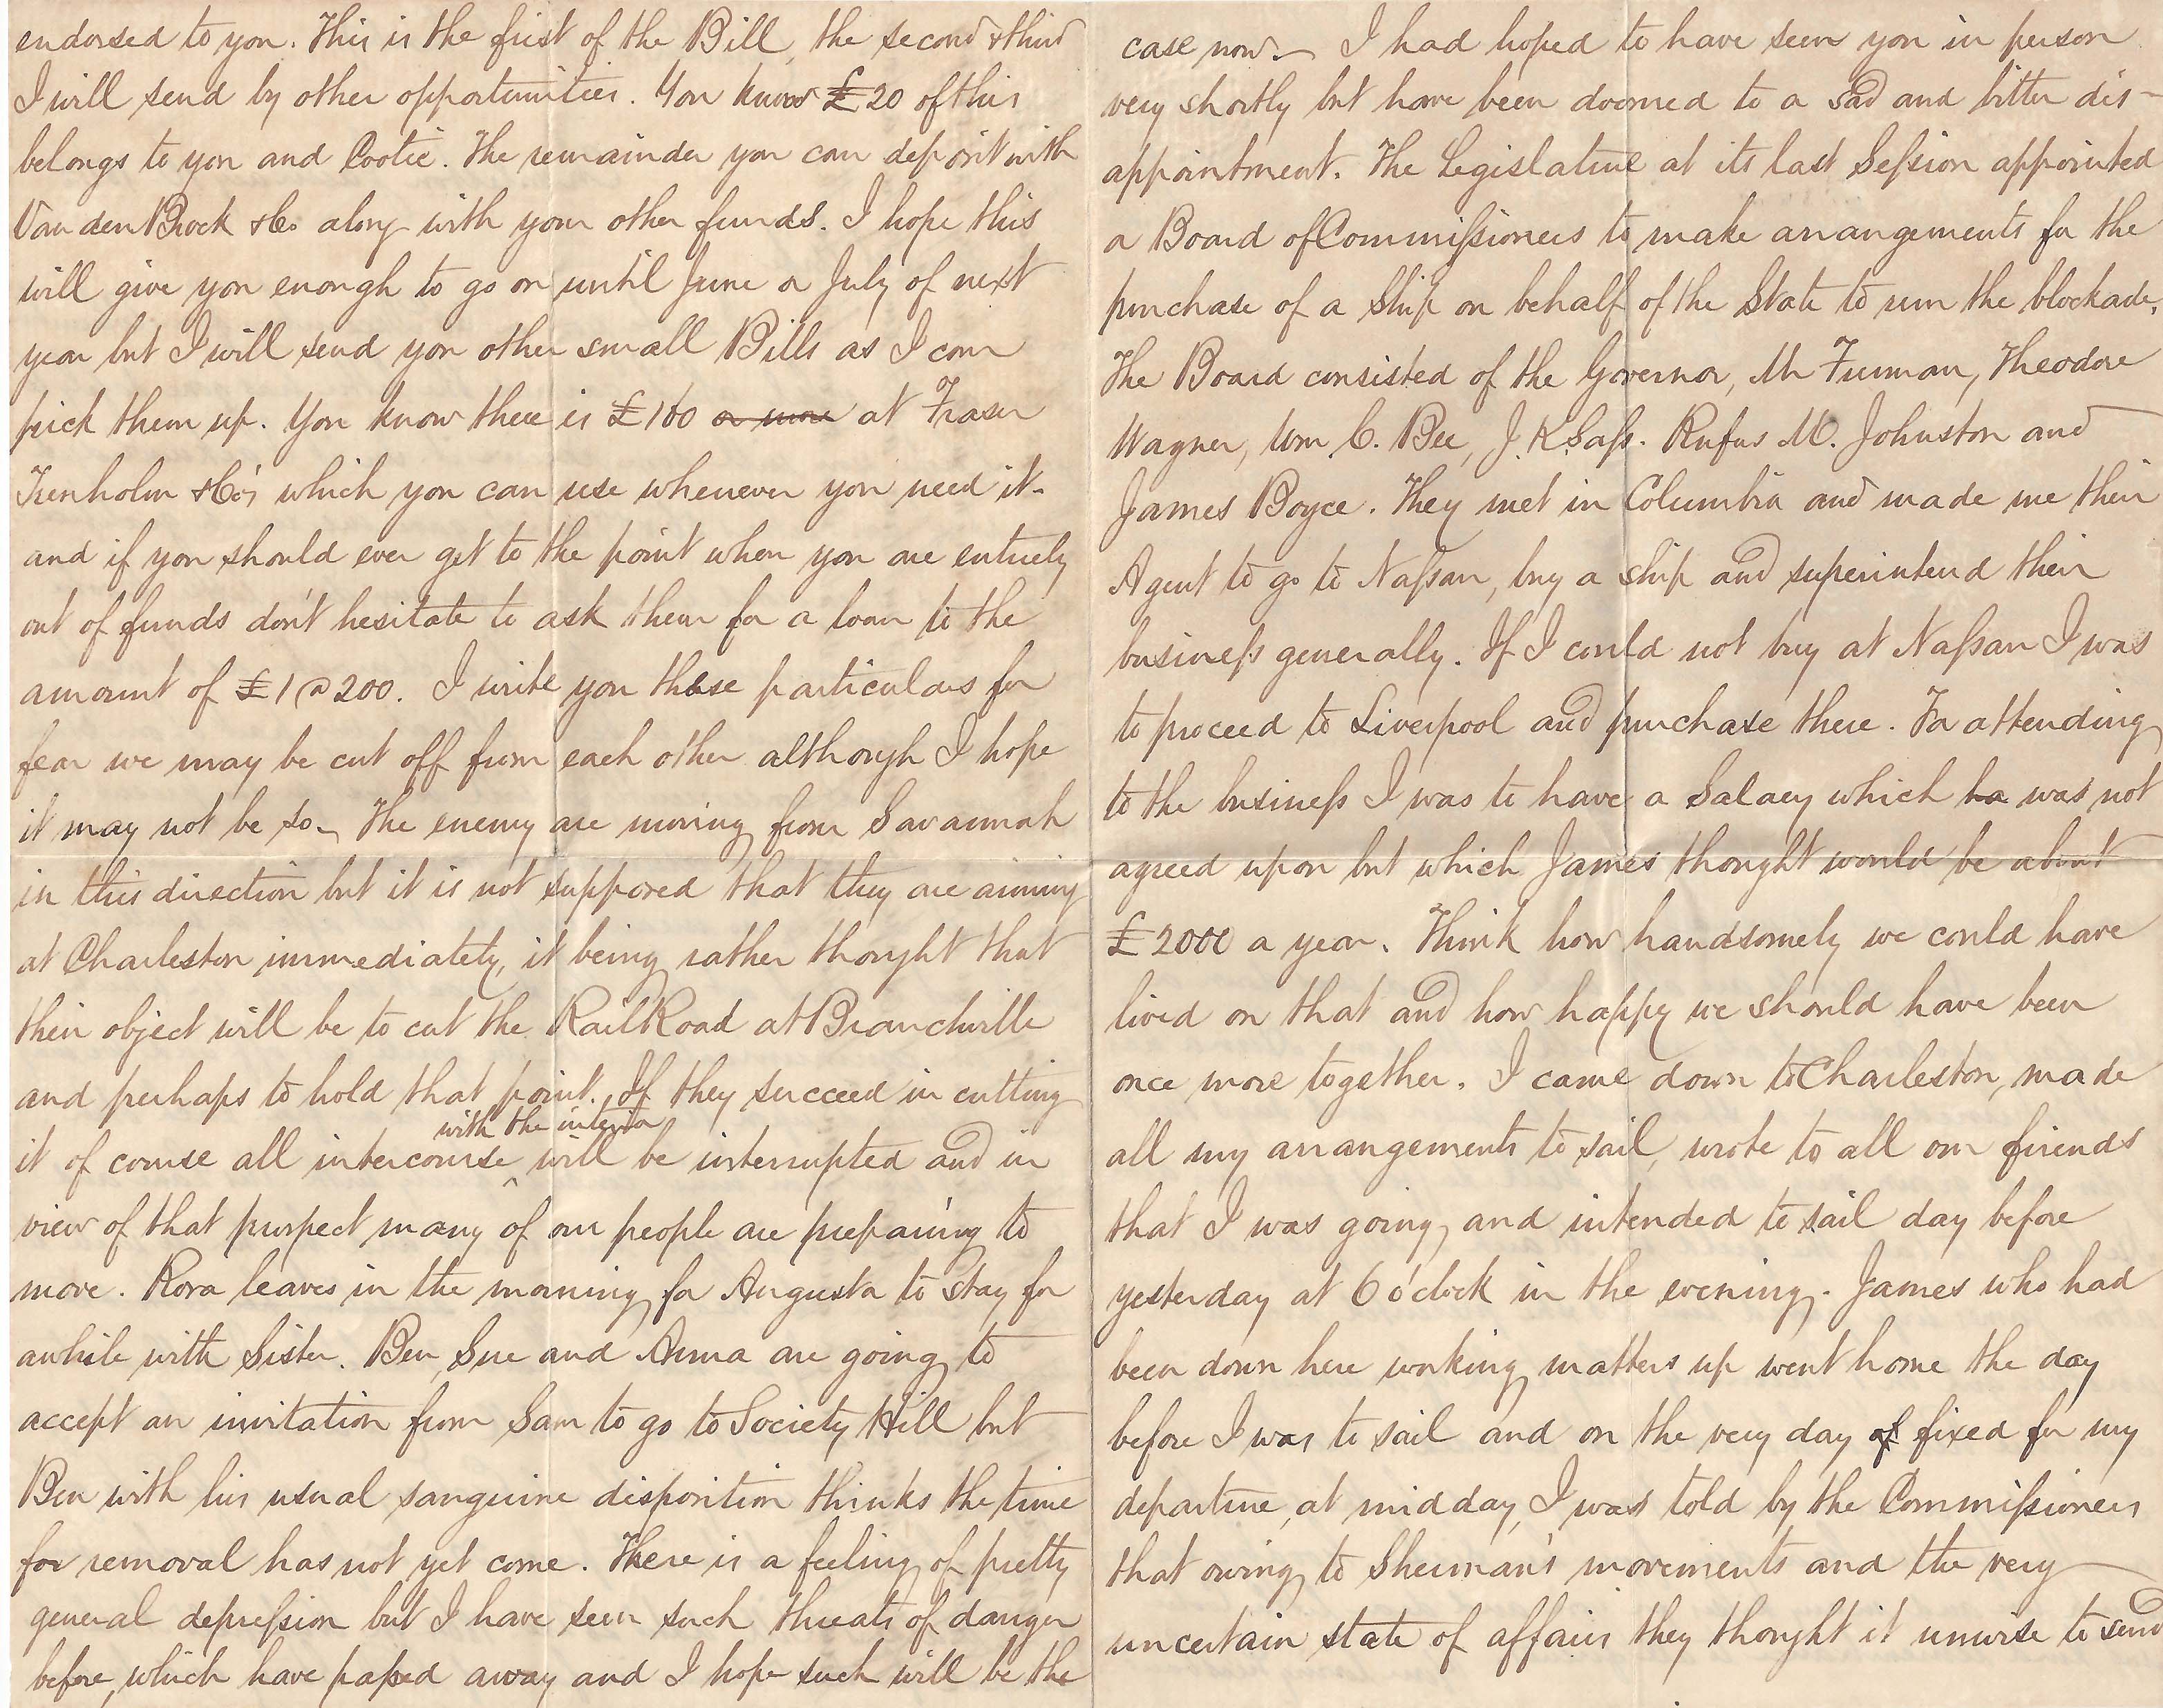 endorsed to you. This is the first of the Bill, the second & third
I will send by other opportunities. You know £20 of this
belongs to you and Cootie. The remainder you can deposit with
Van den Brock & Co along with your other funds. I hope this
will give you enough to go on until June or July of next
year but I will send you other small Bills as I can
pick them up. You know there is £100 or more at Fraser
Trenholm & Co's which you can use whenever you need it -
and if you should ever get to the point when you are entirely
out of funds don't hesitate to ask them for a loan to the
amount of £1 @ 200. I write you these particulars for
fear we may be cut off from each other although I hope
it may not be so - The enemy are moving from Savannah
in this direction but it is not supposed that they are aiming
at Charleston immediately, it being rather thought that
their object will be to cut the RailRoad at Branchville
and perhaps to hold that point. If they succeed in cutting
with the interior
it of course all intercourse ^ will be interrupted and in
view of that prospect many of our people are preparing to
move. Rora leaves in the morning for Augusta to stay for
awhile with Sister. Ben, Sue and Anna are going to
accept an invitation from Sam to go to Society Hill but
Ben with his usual sanguine disposition thinks the time
for removal has not yet come. There is a feeling of pretty
general depression but I have seen such threats of danger
before, which have passed away and I hope such will be the
case now - I had hoped to have seen you in person
very shortly but have been doomed to a sad and bitter dis-
appointment. The Legislature at its last Session appointed
a Board of Commissioners to make arrangements for the
purchase of a Ship on behalf of the State to run the blockade.
The Board consisted of the Governor, Mr Furman, Theodore
Wagner, Wm C. Bee, J. K Sass. Rufus M. Johnston and
James Boyce. They met in Columbia and made me their
Agent to go to Nassau, buy a ship and superintend their
business generally. If I could not buy at Nassau I was
to proceed to Liverpool and purchase there. For attending
to the business I was to have a Salary which ha was not
agreed upon but which James thought would be about
£2000 a year. Think how handsomely we could have
lived on that and how happy we should have been
once more together. I came down to Charleston, made
all my arrangements to sail, wrote to all our friends
that I was going, and intended to sail day before
yesterday at 6 o'clock in the evening. James who had
been down here working matters up went home the day
before I was to sail and on the very day of fixed for my
departure, at midday, I was told by the Commissioners
that owing to Sherman's movements and the very
uncertain state of affairs they thought it unwise to send